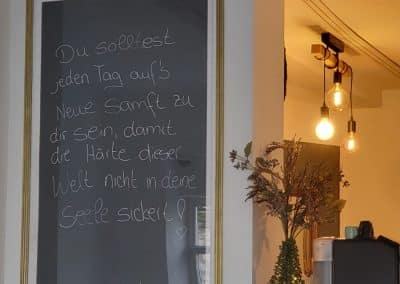 Du solltest
jeden Tag auf's
Neue sanft zu
dir sein, damit
die Härte dieser
Welt nicht in deine
Seele sickert!